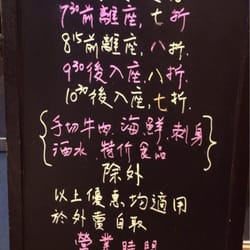 7³⁰前離座,七折
8¹⁵前離座,八折
9³⁰後入座,八折.
10³⁰後入座,七折.
{手切牛肉.海鮮.刺身
酒水.特价食品}
除外
以上優惠均適用
於外賣自取
營業時間